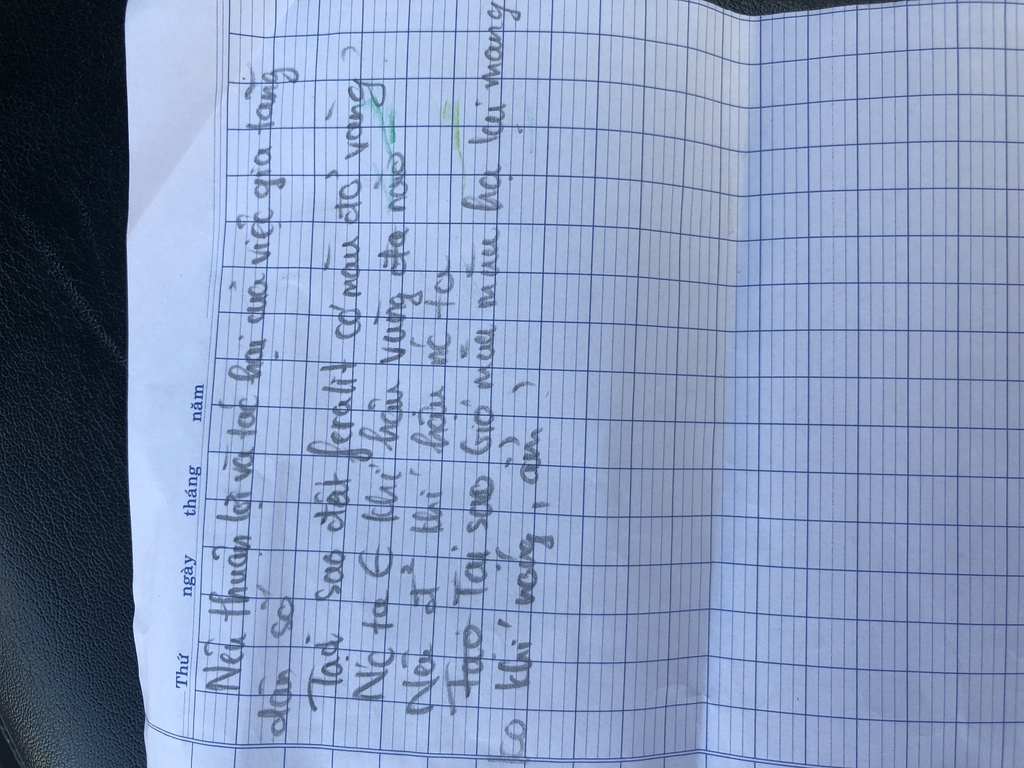 Thứ ngày tháng năm
Nêu thuận lợi và tác hại của việc gia tăng
dân số
Tại sao đất feralit có màu đỏ, vàng
Nc ta ∈ khí hậu vùng đta nào
Nêu đ² khí hậu nc ta
Tại sao Gió mùa mùa hạ lại mang
ko khí nóng, ẩm